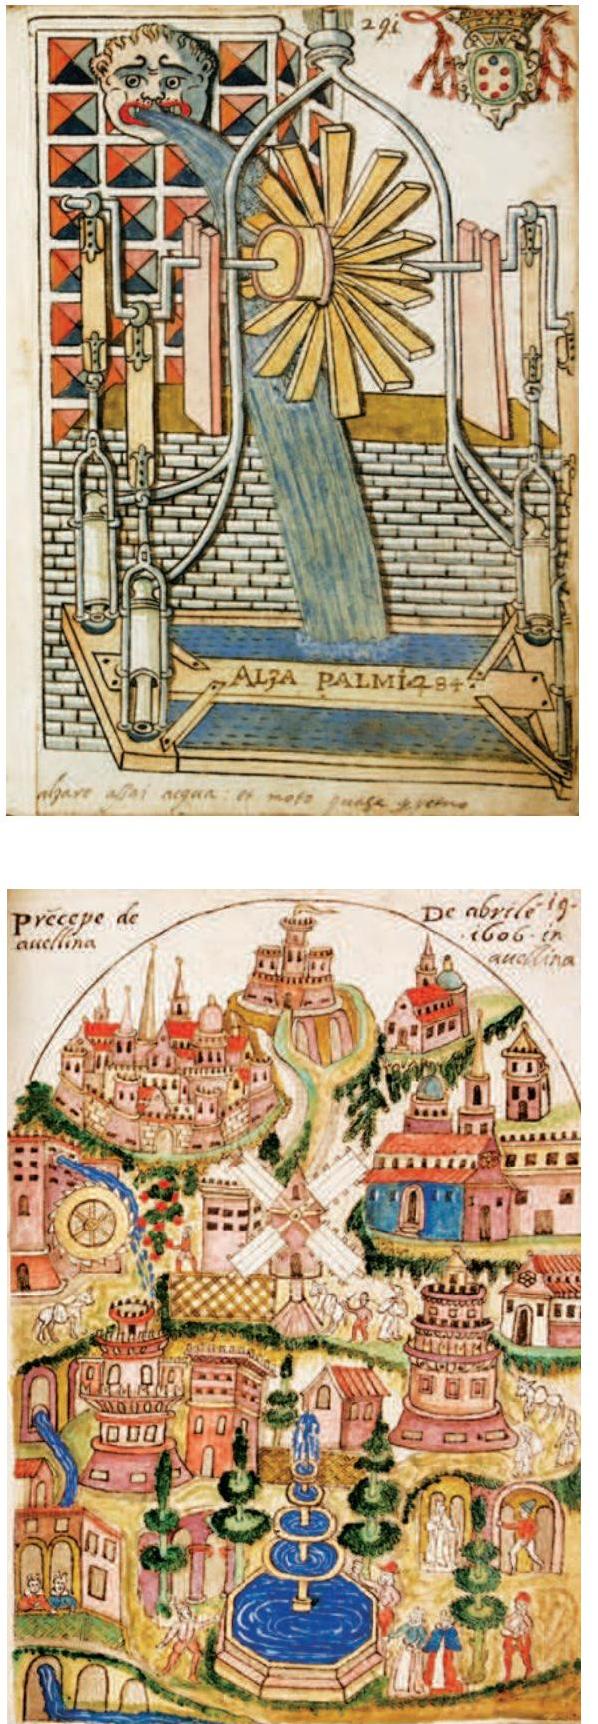 291
ALZA PALMI 284
alzare assai acqua: et moto
Precepe de
auellina
De abrile 19.
.1606. in
auellina